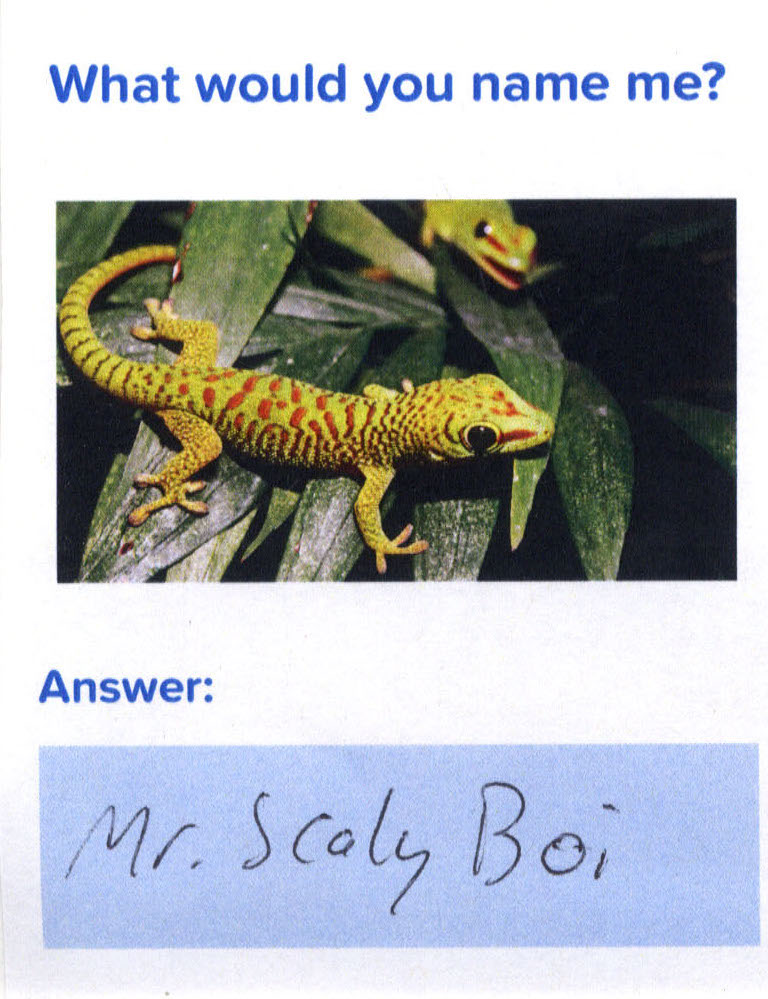 What would you name me?
Answer:
Mr. Scaly Boi